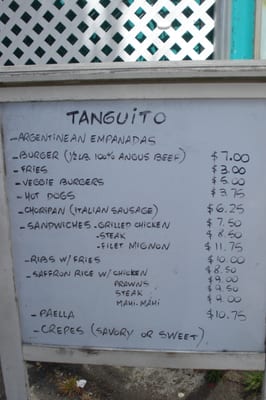 TANGUITO
-ARGENTINEAN EMPANADAS
-BURGER (1/2 LB. 100% ANGUS BEEF) $7.00
-FRIES $3.00
-VEGGIE BURGERS $5.00
-HOT DOGS $3.75
-CHORIPAN (ITALIAN SAUSAGE) $6.25
-SANDWICHES -GRILLED CHICKEN $7.50
-STEAK $8.50
-FILET MIGNON $11.75
-RIBS W/ FRIES $10.00
-SAFFRON RICE W/ CHICKEN $8.50
PRAWNS $9.00
STEAK $9.50
MAHI-MAHI $9.00
-PAELLA $10.75
-CREPES (SAVORY OR SWEET).